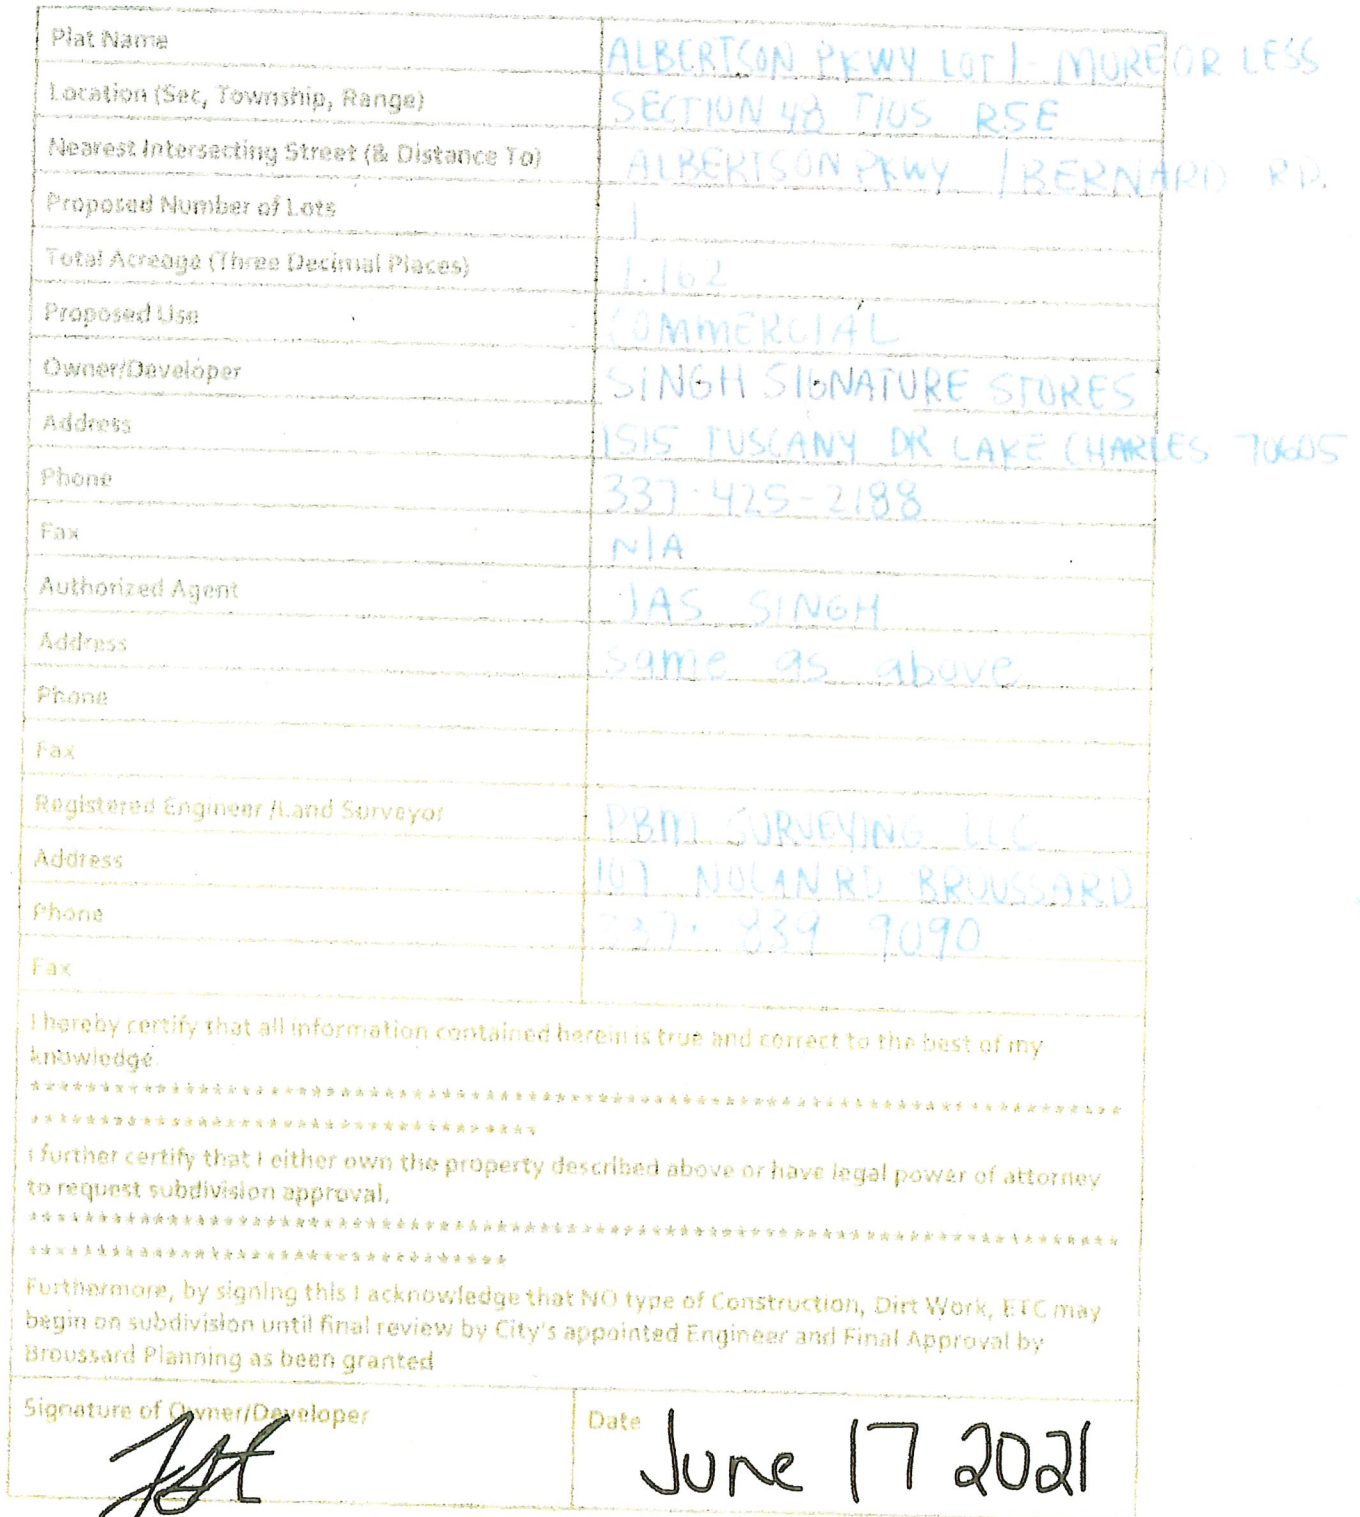 Plat Name ALBERTSON PKWY LOT 1 - MORE OR LESS
Location (Sec, Township, Range) SECTION 48 T10S R5E
Nearest Intersecting Street (& Distance To) ALBERTSON PKWY / BERNARD RD.
Proposed Number of Lots 1
Total Acreage (Three Decimal Places) 1.162
Proposed Use COMMERCIAL
Owner/Developer SINGH SIGNATURE STORES
Address 1515 TUSCANY DR LAKE CHARLES 70605
Phone 337-425-2188
Fax N/A
Authorized Agent JAS SINGH
Address same as above
Phone
Fax
Registered Engineer /Land Surveyor PBM SURVEYING LLC
Address 107 NOLAN RD BROUSSARD
Phone 337. 839 9090
Fax
I hereby certify that all information contained herein is true and correct to the best of my
knowledge.
********************************************************************************
*************************************
I further certify that I either own the property described above or have legal power of attorney
to request subdivision approval.
********************************************************************************
***********************************
Furthermore, by signing this I acknowledge that NO type of Construction, Dirt Work, ETC may
begin on subdivision until final review by City's appointed Engineer and Final Approval by
Broussard Planning as been granted
Signature of Owner/Developer Date June 17 2021